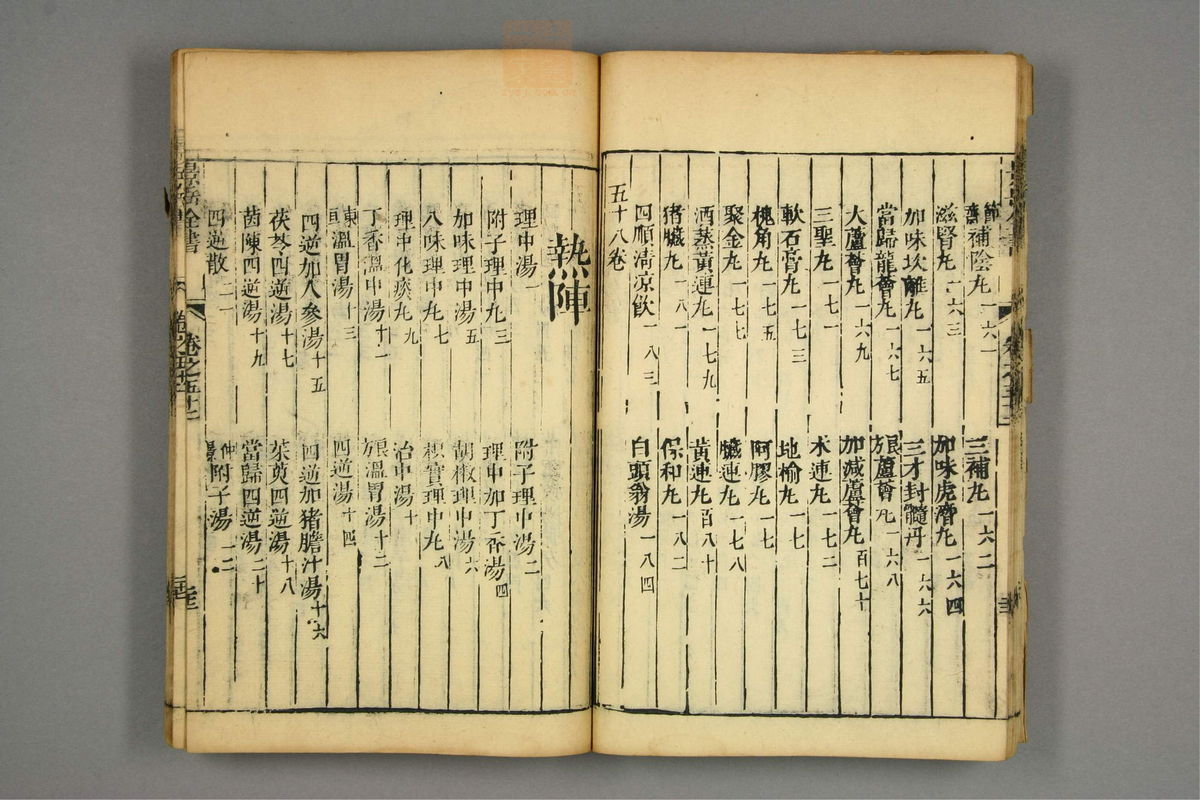 節齋補陰丸一六一
三補丸一六二
滋腎丸一六三
加味虎潛丸一六四
加味坎離丸一六五
三才封髓丹一六六
當歸龍薈丸一六七
蘆薈丸一六八
大蘆薈丸一六九
加減蘆薈丸百七十
三聖丸一七一
水連丸一七二
軟石膏丸一七三
地榆丸
槐角丸一七五
阿膠丸一七
聚金丸一七七
臟連丸一七八
酒蒸黃連丸一七九
黃連丸百八十
猪臟丸一八一
保和丸一八二
四順清涼飲一八三
白頭翁湯一八四
五十八卷
熱陣
理中湯一
附子理中湯二
附子理中丸三
理中加丁香湯四
加味理中湯五
胡椒理中湯六
八味理中丸七
枳實理中丸八
理中化痰丸九
治中湯十
丁香溫中湯十一
溫胃湯十二
東垣溫胃湯十三
四逆湯十四
四逆加人參湯十五
四逆加猪膽汁湯十六
茯苓四逆湯十七
茱萸四逆湯十八
茵陳四逆湯十九
當歸四逆湯二十
四逆散二一
仲景附子湯二二
景岳全書
卷之五十二